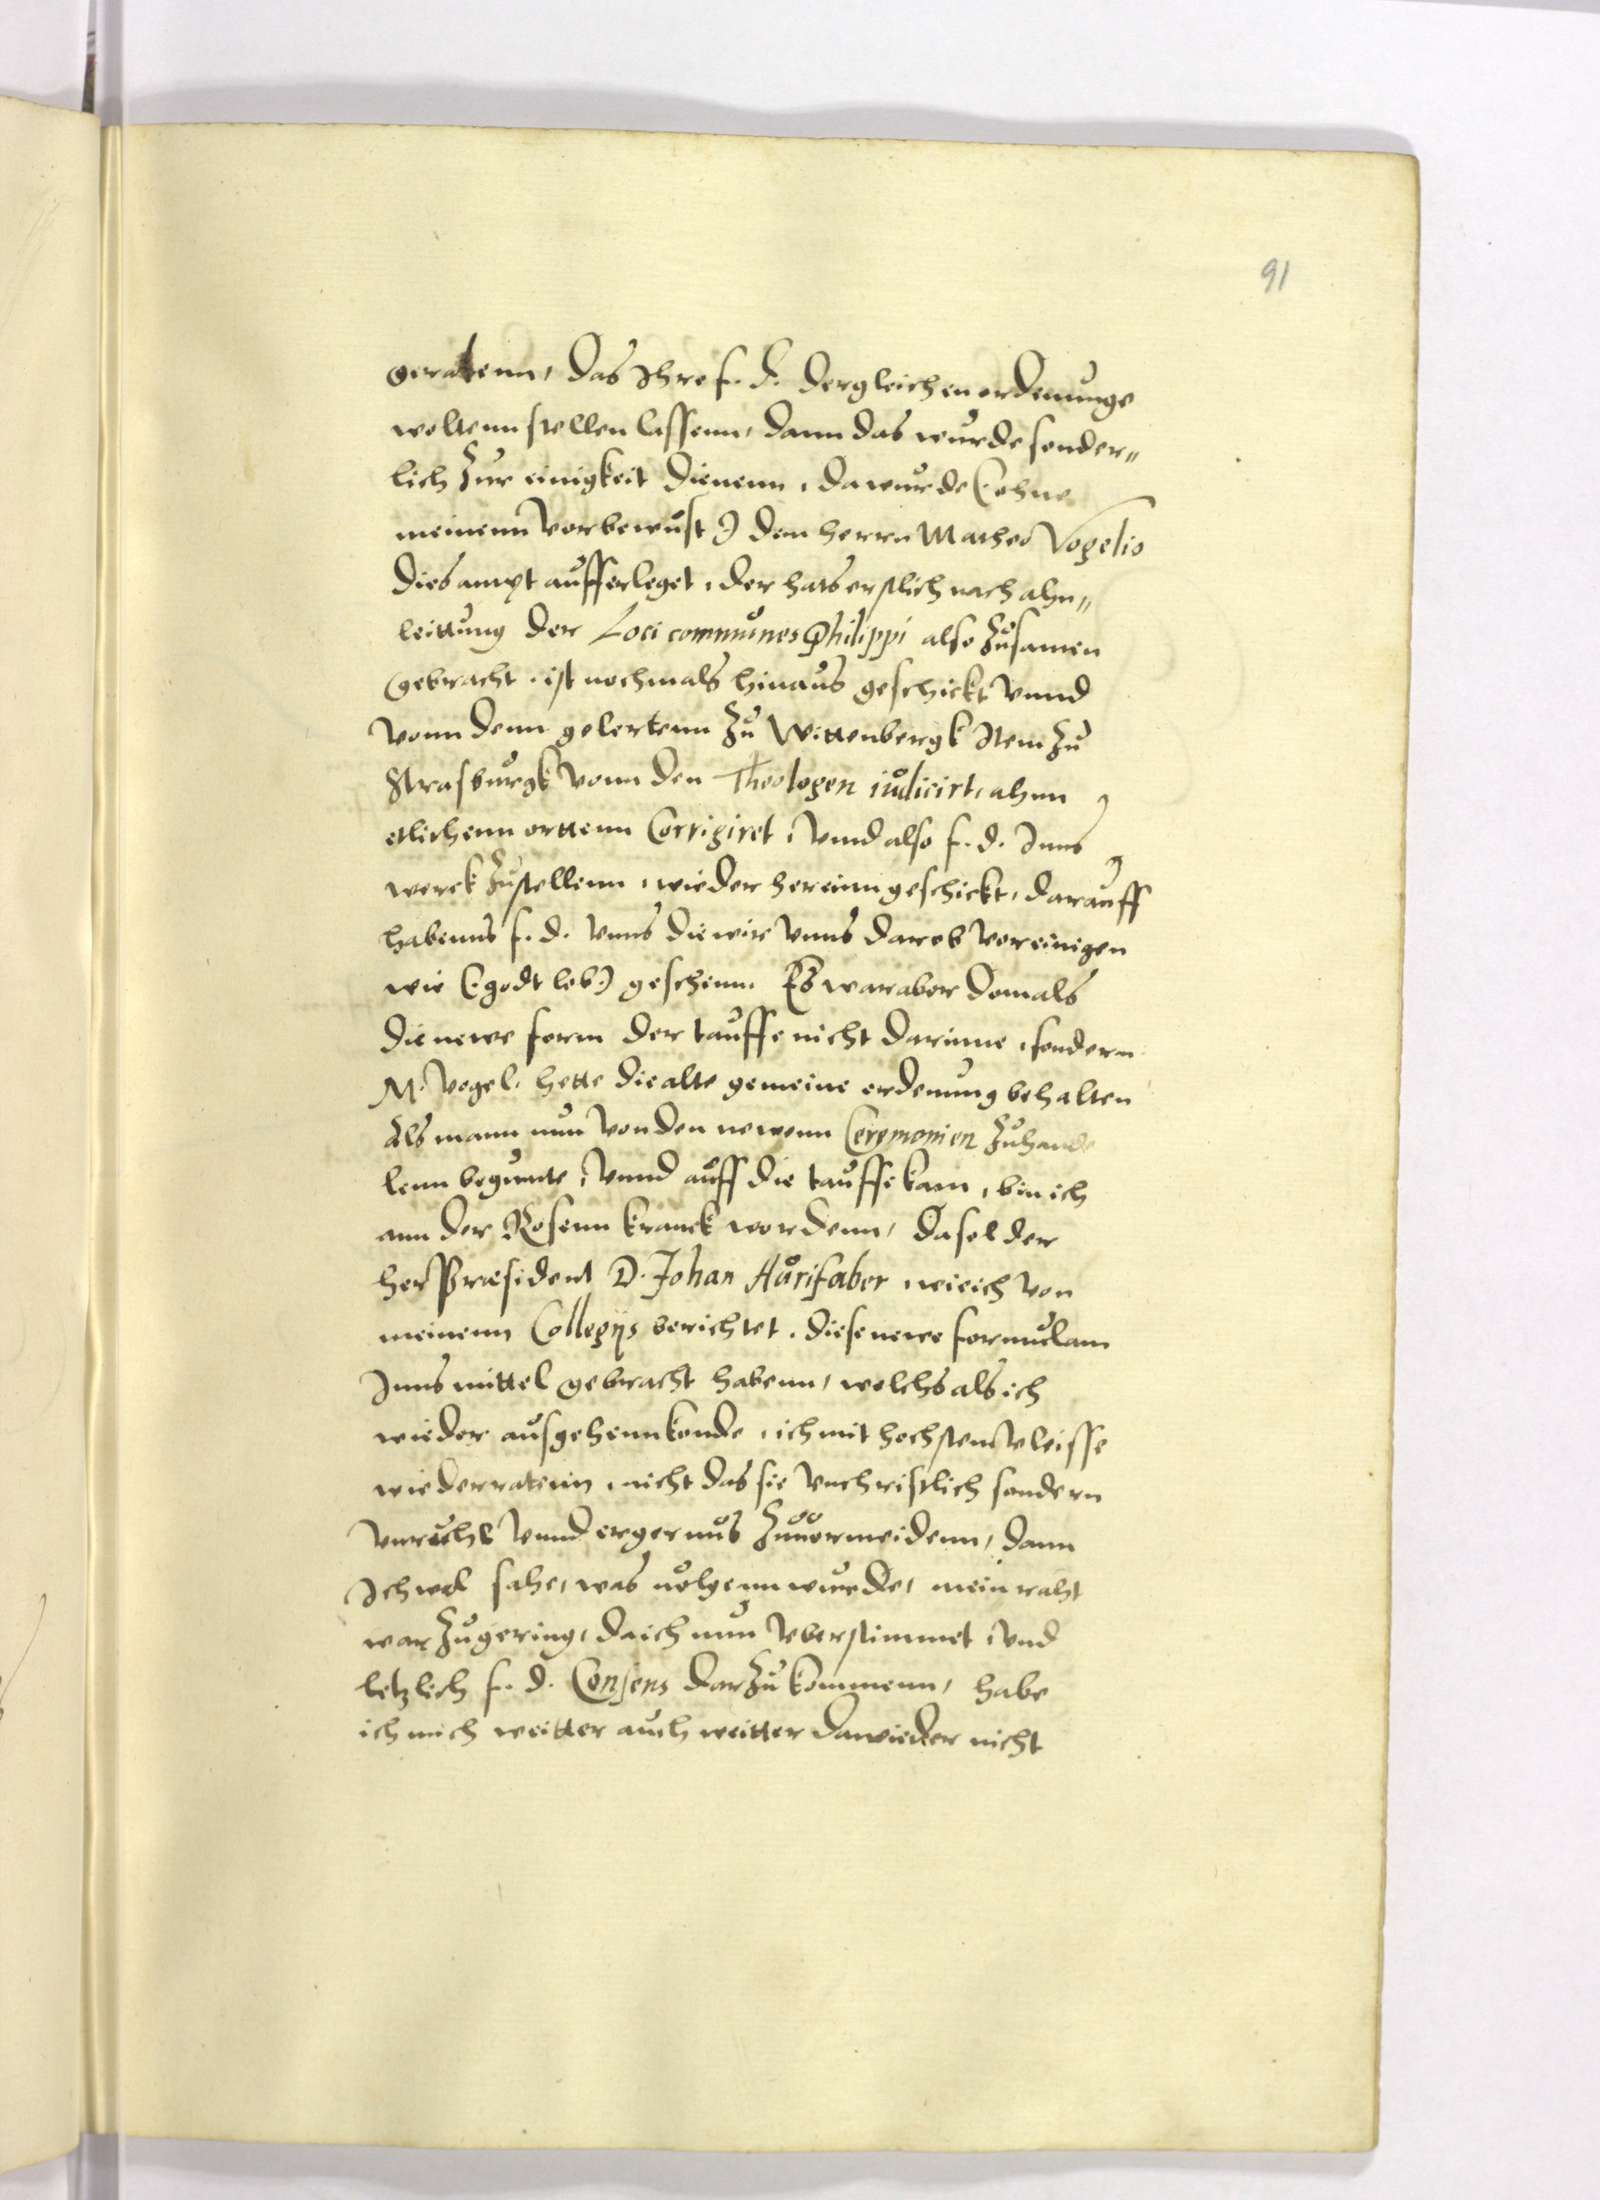 91
geratenn, das Ihre f. d. dergleichen ordenunge
woltenn stellen lassenn, dann das wurde sonder"
lich zur einigkeit dienenn, da wurde (: ohne
meinenn vorbewust :) dem herrn Matheo Vogelio
dies ampt aufferleget, der hats erstlich nach ahn"
leittung der Loci communes Philippi also zusamen
gebracht, ist nochmals hinaus geschickt vnnd
vonn denn gelertenn zu Wittenbergk Item zu
Strasburgk vonn den Theologen iudicirt, ahnn
etlichenn orttenn Corrigiret, vnnd also f. d. Inns
werck zustellenn, wieder hereinn geschickt, darauff
habenns f. d. vnns die wir vnns darob voreinigen
wie (: godt lob :) geschenn. Es war aber domals
die newe form der tauffe nicht darinne, sondern
M. Vogel, hette die alte gemeine ordenung behalten
Als mann nun von den newenn Ceremonien zuhande
lenn begunte, vnnd auff die tauffe kam, bin ich
ann der Rosenn kranck wordenn, da sol der
her Præsident D. Johan Aurifaber wie ich von
meinenn Collegijs berichtet, diese newe formulam
Inns mittel gebracht habenn, welchs als ich
wieder ausgehenn konde, ich mit hochstem vleisse
wiederratenn, nicht das sie vnchristlich sondern
vnruhe vnnd ergernus zuuormeidenn, dann
Ich wol sahe, was uolgenn wurde, mein raht
war zugering, da ich nun vberstimmet, vnd
letzlich f. d. Consens darzu kommenn, habe
ich mich weitter auch weitter dawieder nicht